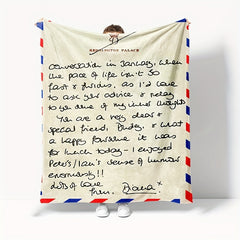 KENSINGTON PALACE
conversation in January, when
the pace of life isn't so
fast & furious, as I'd love
to ask yr advice & relay
to you some of my inner thoughts
You are a very dear &
special friend, & what
a happy fun time it was
for lunch today - I enjoyed
Peter's/Ian's sense of humour
enormously!!
lots of love
from, Diana x